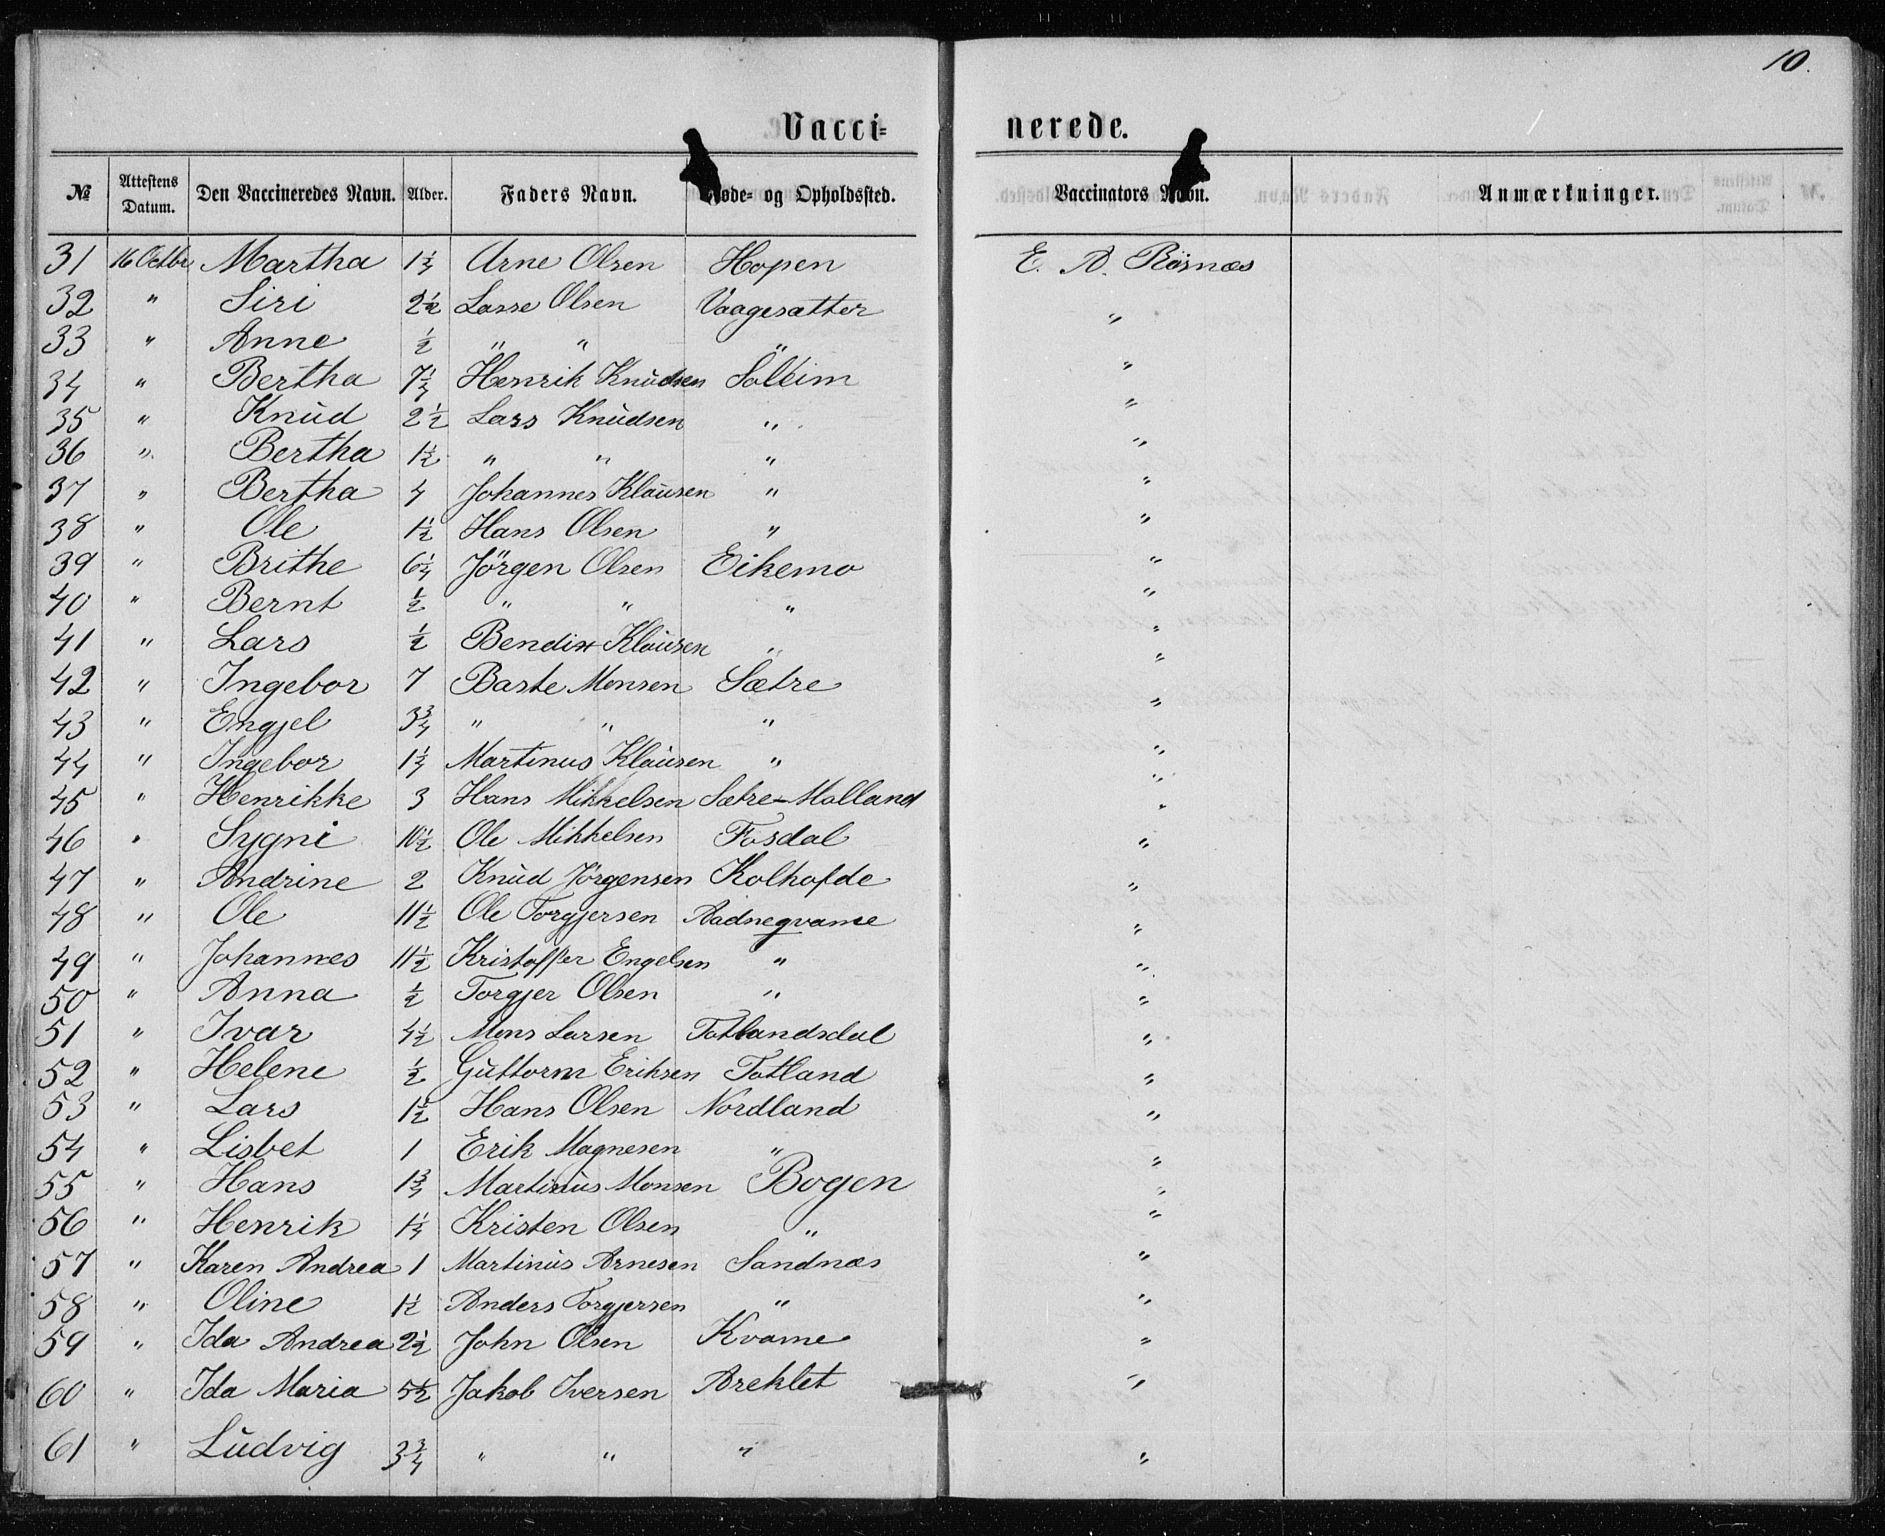 10.
Vacci= nerede.
№ Attestens Datum. Den Vaccineredes Navn. Alder. Faders Navn. Føde- og Opholdssted. Vaccinators Navn. Anmærkninger.
31 16 Octbr Martha 1¼ Arne Olsen Hopen E. A. Risnæs
32 " Siri 2½ Lasse Olsen Vaagesætter "
33 " Anne ½ " " " "
34 " Bertha 7¼ Henrik Knudsen Solеim "
35 " Knud 2½ Lars Knudsen " "
36 " Bertha 1½ " " " "
37 " Bertha 4 Johannes Klausen " "
38 " Ole 1½ Hans Olsen " "
39 " Brithe 6¼ Jörgen Olsen Eikemo "
40 " Bernt ½ " " " "
41 " Lars ½ Bendix Klausen " "
42 " Ingebor 7 Baste Monsen Sætre "
43 " Engjel 3¾ " " " "
44 " Ingebor 1¼ Martinus Klausen " "
45 " Henrikke 3 Hans Mikkelsen Sætre-Molland "
46 " Sygni 10½ Ole Mikkelsen Fosdal "
47 " Andrine 2 Knud Jörgensen Kolhofde "
48 " Ole 11½ Ole Torgjersen Aadnegvame "
49 " Johannes 11½ Kristoffer Engelsen " "
50 " Anna ½ Torgjer Olsen " "
51 " Ivar 4½ Mons Larsen Totlandsdal "
52 " Helene ½ Guttorm Eriksen Totland "
53 " Lars 1½ Hans Olsen Nordland "
54 " Lisbet 1 Erik Magnesen " "
55 " Hans 1¾ Martinus Monsen Bogen "
56 " Henrik 1¼ Kristen Olsen " "
57 " Karen Andrea 1 Martinus Arnesen Sandnæs "
58 " Oline 1½ Anders Torgjersen " "
59 " Ida Andrea 2½ John Olsen Kvame "
60 " Ida Maria 5½ Jakob Iversen Areklet "
61 " Ludvig 3¾ " " " "